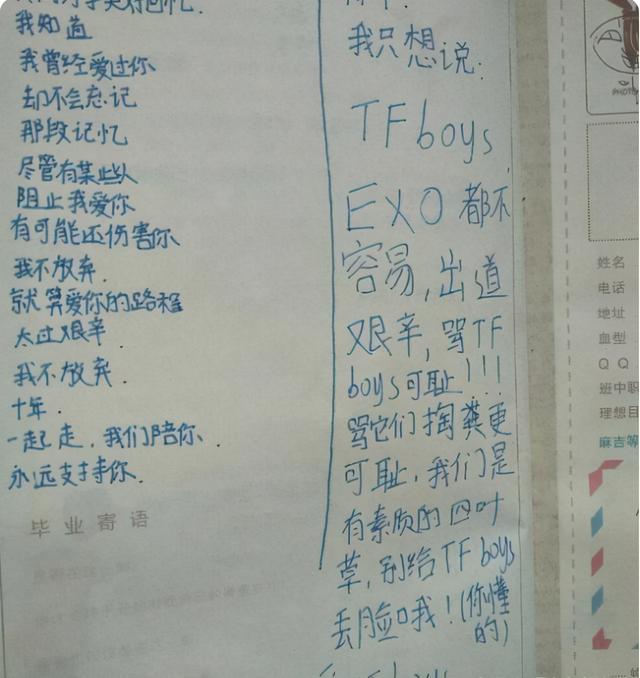 我知道
我曾经爱过你
却不会忘记
那段记忆
尽管有某些人
阻止我爱你
有可能还伤害你
我不放弃.
就算爱你的路程
太过艰辛.
我不放弃.
十年.
一起走，我们陪你.
永远支持你.
毕业寄语
我只想说:
TFboys,
EXO都不
容易,出道
艰辛,骂TF
boys可耻!!!
骂它们掏粪更
可耻,我们是
有素质的四叶
草,别给TFboys
丢脸哦!(你懂
的)
PHOTO
姓名
电话
地址
血型
Q Q
班中职
理想目
麻吉等